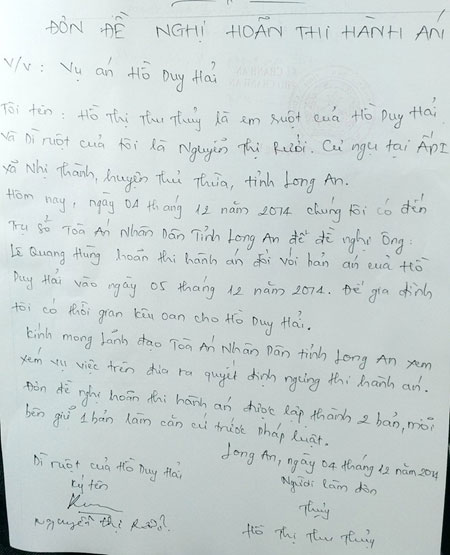 ĐƠN ĐỀ NGHỊ HOÃN THI HÀNH ÁN
V/v : Vụ án Hồ Duy Hải
Tôi tên : Hồ Thị Thu Thủy là em ruột của Hồ Duy Hải
Và Dì ruột của tôi là Nguyễn Thị Rưởi. Cư ngụ tại ẤP I
xã Nhị Thành, huyện Thủ Thừa, tỉnh Long An.
Hôm nay, ngày 04 tháng 12 năm 2014 chúng tôi có đến
Trụ sở Toà Án Nhân Dân Tỉnh Long An để đề nghị Ông :
Lê Quang Hùng hoãn thi hành án đối với bản án của Hồ
Duy Hải vào ngày 05 tháng 12 năm 2014. Để gia đình
tôi có thời gian kêu oan cho Hồ Duy Hải.
Kính mong Lãnh đạo Toà Án Nhân Dân tỉnh Long An xem
xem vụ việc trên đưa ra quyết định ngưng thi hành án.
Đơn đề nghị hoãn thi hành án được lập thành 2 bản, mỗi
bên giữ 1 bản làm căn cứ trước pháp luật.
Long An, ngày 04 tháng 12 năm 2014
Dì ruột của Hồ Duy Hải
Ký tên
Nguyễn Thị Rưởi.
Người làm đơn
Thủy
Hồ Thị Thu Thủy